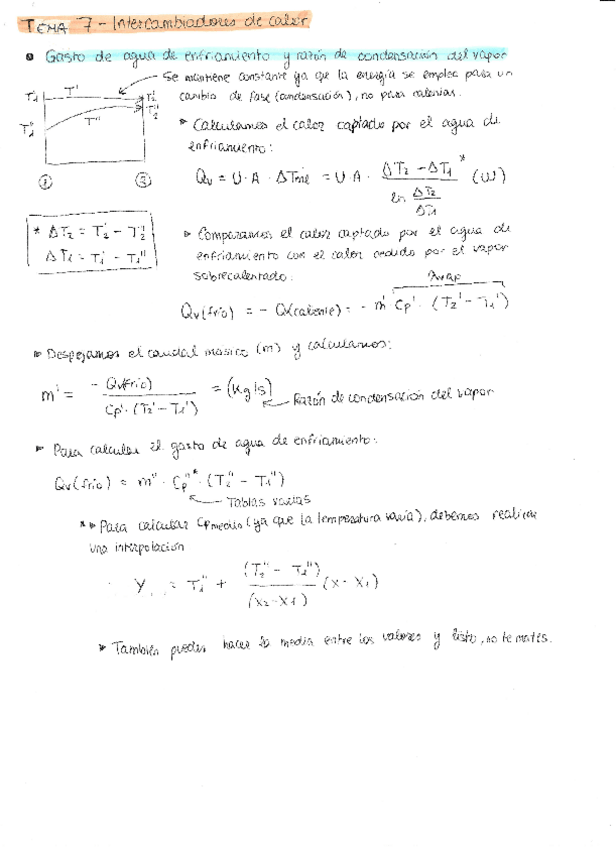 TEMA 7 - Intercambiadores de calor
Gasto de agua de enfriamiento y razón de condensación del vapor
Se mantiene constante ya que la energía se emplea para un
cambio de fase (condensación), no para calentar.
T1' T' T2'
T2''
T1'' T''
① ②
* Calculamos el calor captado por el agua de
enfriamiento:
Qv = U · A · ΔTml = U · A · (ΔT2 - ΔT1)* / ln (ΔT2 / ΔT1) (W)
* ΔT2 = T2' - T2''
ΔT1 = T1' - T1''
Comparamos el calor captado por el agua de
enfriamiento con el calor cedido por el vapor
sobrecalentado:
λvap
Qv(frío) = - Q(caliente) = - m' Cp' · (T2' - T1')
Despejamos el caudal másico (m) y calculamos:
m' = - Qv(frío) / Cp' · (T2' - T1') = (kg/s)
Razón de condensación del vapor
Para calcular el gasto de agua de enfriamiento:
Qv(frío) = m'' · Cp''* · (T2'' - T1'')
Tablas varias
* Para calcular Cp medio (ya que la temperatura varía), debemos realizar
una interpolación
Y = T1'' + (T2'' - T1'') / (x2 - x1) (x - x1)
* También puedes hacer la media entre los valores y listo, no te mates.